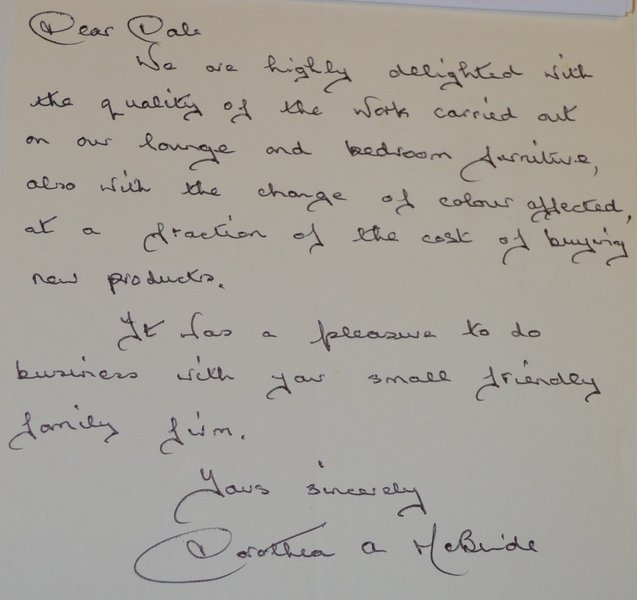 Dear Dale
We are highly delighted with
the quality of the work carried out
on our lounge and bedroom furnitive,
also with the change of colour affected,
at a fraction of the cost of buying
new products.
It was a pleasure to do
business with your small friendly
family firm.
Yours sincerely
Dorothea a McBride